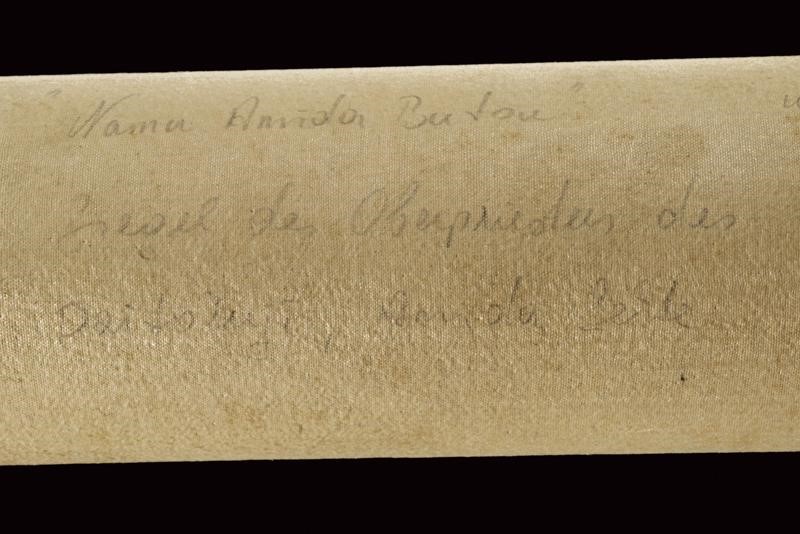 "Nama Amida Butsu"
Siegel des Oberpriesters des
Daitokuji, Amida Sekte